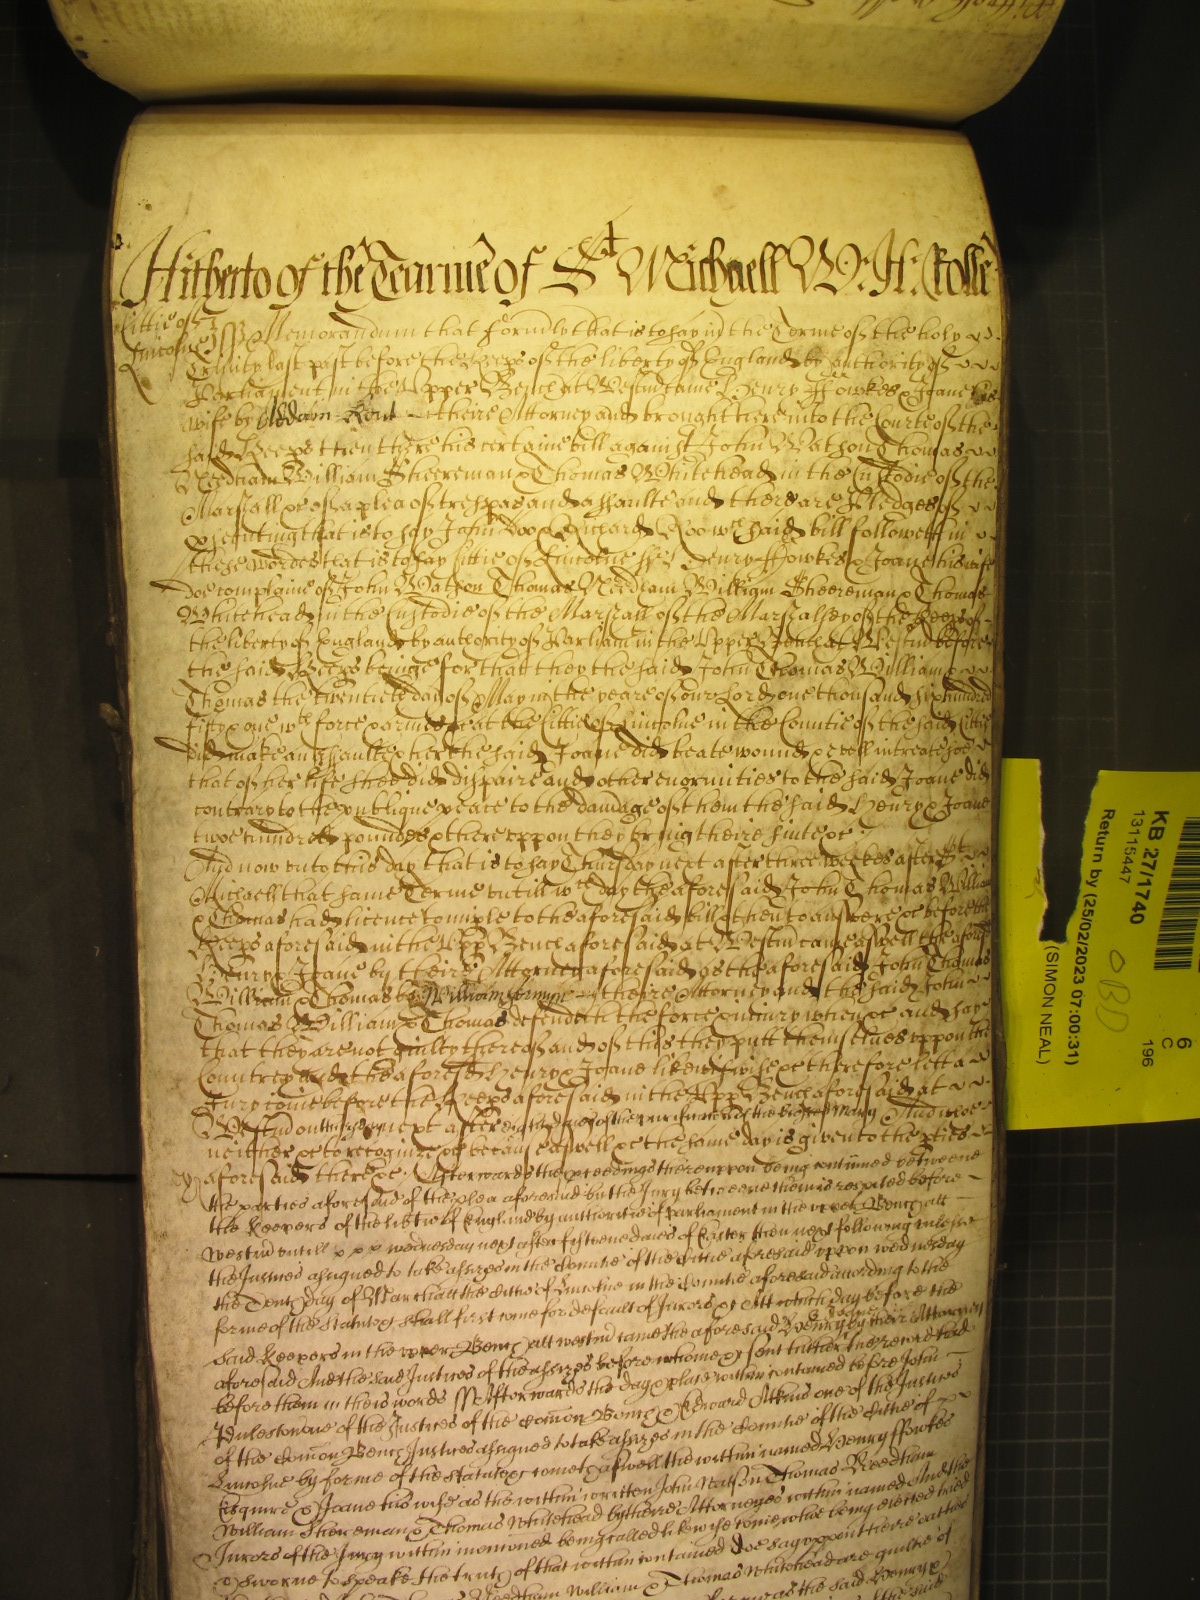 Hitherto of the Tearme of St Michaell W: H: Rolle
Cittie of
Lincolne ss Memorandum that formerly that is to say in the Terme of the holy
Trinity last past before the Keeps of the liberty of England by authority of
Parliament in the Upper Bench at Westm came Henry Ffowkes & Joane his
wife by Adam Kent theire Attorney and brought here into the Courte of the
said Keeps then there his certaine bill against John Watson Thomas
Needham William Sheereman & Thomas Whitehead in the Custodie of the
Marshall &c of a plea of trespas and assaulte and there are Pledges of
psecuting that is to say John Doo & Richard Roo wch said bill followeth in
these wordes that is to say Cittie of Lincolne ss Henry Ffowkes & Joane his wife
doe complaine of John Watson Thomas Needham William Sheereman & Thomas
Whitehead in the Custodie of the Marshall of the Marshalsey of the Keeps of
the liberty of England by authority of Parliam in the Upper Bench at Westm before
the said Keeps beinge for that they the said John Thomas William &
Thomas the twentieth day of May in the yeare of our Lord one thousand six hundred
fifty & one wth force & armes &c at the Cittie of Lincolne in the Countie of the said Cittie
did make an assaulte & her the said Joane did beate wound & evell intreate soe
that of her life shee did dispaire and other enormities to the said Joane did
contrary to the publique peace to the damage of them the said Henry & Joane
twoe hundred poundes & thereuppon they bring theire suite &c
And now unto this day that is to say Thursday next after three weekes after St
Michaell that same Terme untill wch day the aforesaid John Thomas William
& Thomas had licence to imple to the aforesaid bill & then to answere &c before the
Keeps aforesaid in the Upp Bench aforesaid at Westm came aswell the aforesd
Henry & Joane by theire Attorney aforesaid as the aforesaid John Thomas
William & Thomas by William theire Attorney and the said John
Thomas William & Thomas defendeth the force & iniury when &c and say
that they are not guilty thereof and of this they putt themselves uppon the
Countrey and the aforesd Henry & Joane likewise &c therefore lett a
Jury come before the Keeps aforesaid in the Upp Bench aforesaid at
Westm on next after of the purification of the blessed Mary And whoe
neither &c to recognize &c because aswell &c the same day is given to the pties
aforesaid there &c Afterwards the pceedings thereuppon being continued betweene
the parties aforesaid of the plea aforesaid by the Jury betweene them is respited before
the Keepers of the libtie of England by authoritie of parliament in the upper Bench att
Westm untill wednesday next after fifteene daies of Easter then next following unlesse
the Justices assigned to take assizes in the Countie of the Cittie aforesaid uppon wednesday
the Tenth day of March att the Cittie of Lincolne in the Countie aforesaid according to the
forme of the Statute &c shall first come for default of Jurors &c Att which day before the
said Keepers in the upper Bench att westm came the aforesaid Henry & Joane by their Attorney
aforesaid And the said Justices of the assizes before whome &c sent hither their record had
before them in theis words ss Afterwards the day & place within contained before John
Puleston one of the Justices of the Comon Bench & Edward Atkins one of the Justices
of the Comon Bench Justices assigned to take assizes in the Countie of the Cittie of
Lincolne by forme of the Statute &c cometh aswell the within named Henry Ffowkes
Esquire & Joane his wife as the within written John Watson Thomas Needham
William Sheereman & Thomas Whitehead by theire Attorneyes within named And the
Jurors of the Jury within mentioned being called likewise come whoe being elected tried
& sworne to speake the truth of that within contained doe say uppon theire oathes
Needham William & Thomas Whitehead are guiltie of
the said Henry &
KB 27/1740
13115447
Return by (25/02/2023 07:00:31)
(SIMON NEAL)
OBD
6
C
196